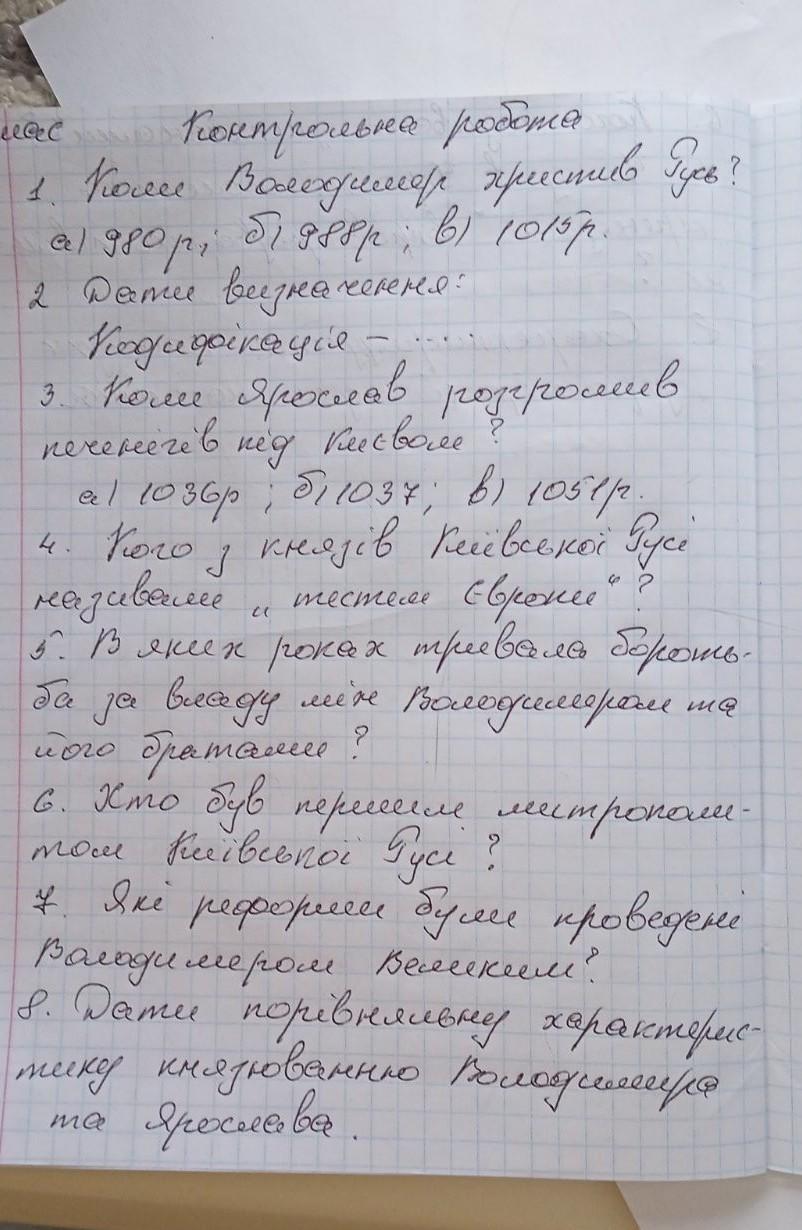 Контрольна робота
1. Коли Володимер христив Русь?
а) 980 р; б) 988р; в) 1015р.
2 Дати визначення:
Кодифікація – .....
3. Коли Ярослав розгромив
печенігів під Києвом?
а) 1036р; б) 1037; в) 1051р.
4. Кого з князів Київської Русі
називали „тестем Європи“?
5. В яких роках тривала бороть-
ба за владу між Володимером та
його братами?
6. Хто був першим митрополи-
том Київської Русі?
7. Які реформи були проведені
Володимером Великим?
8. Дати порівняльну характерис-
тику князюванню Володимира
та Ярослава.